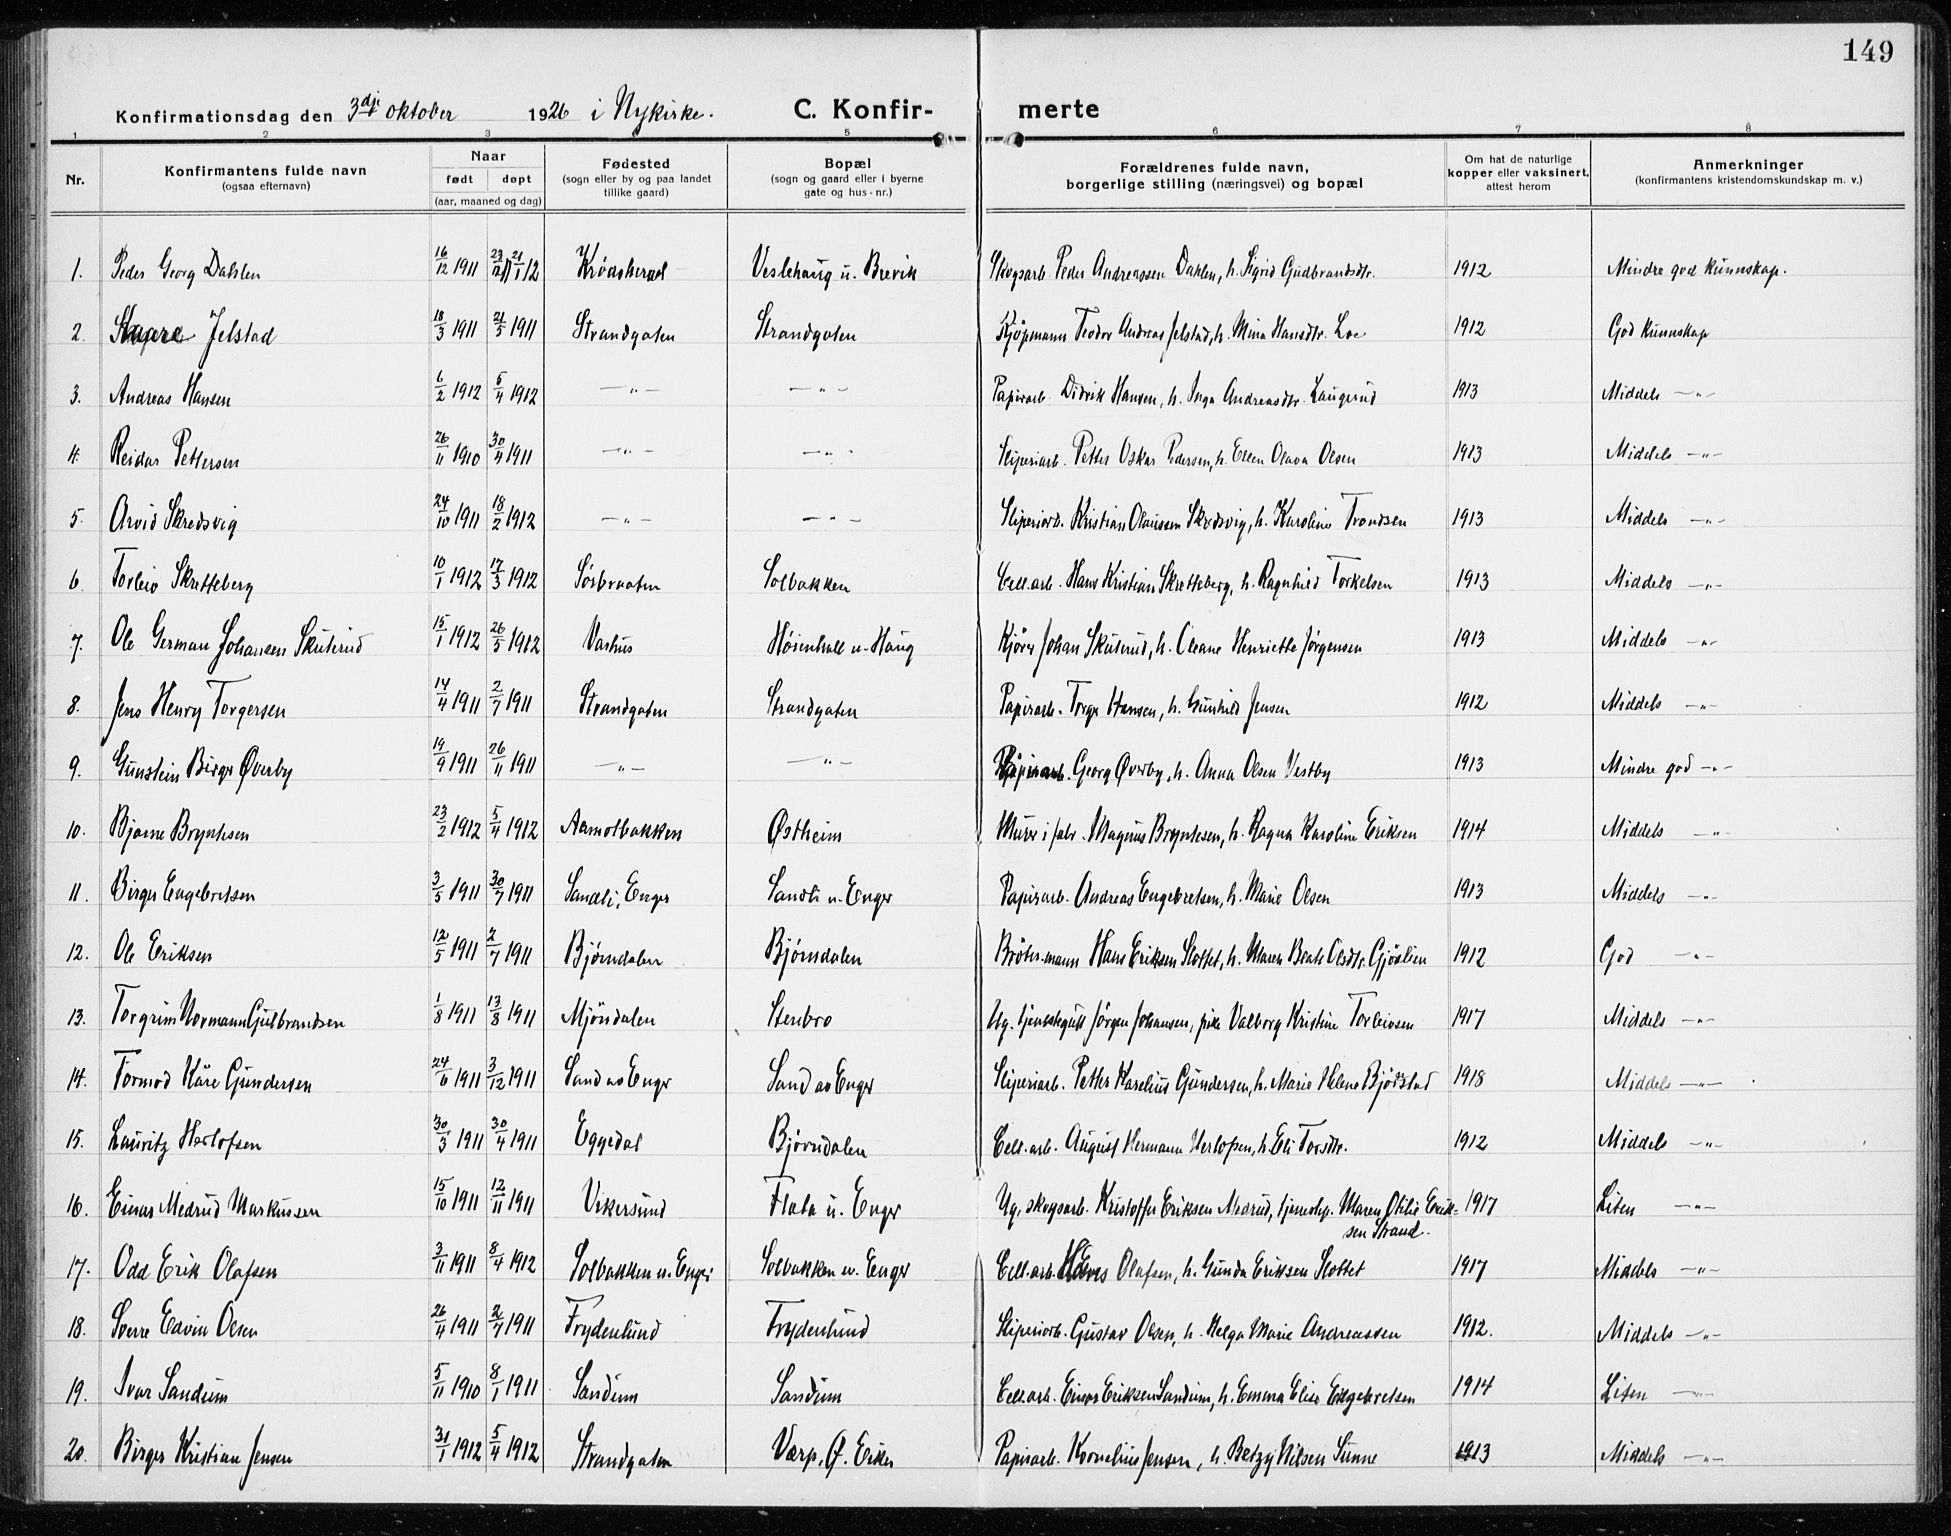 149
Konfirmationsdag den 3dje oktober 1926 i Nykirke. C. Konfirmerte
1 2 3 5 6 7 8
Nr. Konfirmantens fulde navn (ogsaa efternavn) Naar født døpt (aar, maaned og dag) Fødested (sogn eller by og paa landet tillike gaard) Bopæl (sogn og gaard eller i byerne gate og hus-nr.) Forældrenes fulde navn, borgerlige stilling (næringsvei) og bopæl Om hat de naturlige kopper eller vaksinert, attest herom Anmerkninger (konfirmantens kristendomskundskap m. v.)
1. Peder Georg Dahlen 16/12 1911 21/1 12 Krødsherad Veslehaug u. Brevik Skogsarb. Peder Andreassen Dahlen, h. Sigrid Gudbrandsdtr. 1912 Mindre god kunnskap.
2. Jelstad 18/3 1911 21/5 1911 Strandgaten Strandgaten Kjøpmann Teodor Andreas Jelstad, h. Mina Hansdtr. Loe 1912 God kunnskap
3. Andreas Hansen 6/2 1912 5/4 1912 —"— —"— Papirarb. Didrik Hansen, h. Inga Andreasdtr. Laugerud 1913 Middels —"—
4. Reidar Pettersen 26/11 1910 30/4 1911 —"— —"— Sliperiarb. Petter Oskar Pedersen, h. Ellen Olava Olsen 1913 Middels —"—
5. Arvid Skredsvig 24/10 1911 18/2 1912 —"— —"— Sliperiarb. Kristian Olaussen Skredsvig, h. Karoline Trondsen 1913 Middels —"—
6. Torleiv Skretteberg 10/1 1912 17/3 1912 Sørbraaten Solbakken Cell.arb. Hans Kristian Skretteberg, h. Ragnhild Torkelsen 1913 Middels —"—
7. Ole German Johansen Skuterud 15/1 1912 26/5 1912 Vashus Høienhall u. Haug Kjører Johan Skuterud, h. Oleane Henriette Jørgensen 1913 Middels —"—
8. Jens Henry Torgersen 14/4 1911 2/7 1911 Strandgaten Strandgaten Papirarb. Torger Hansen, h. Gunhild Jensen 1912 Middels —"—
9. Gunstein Birger Øverby 19/9 1911 26/11 1911 —"— —"— Papirarb. Georg Øverby, h. Anna Olsen Vestby 1913 Mindre god —"—
10. Bjarne Bryntesen 23/2 1912 5/4 1912 Aamotbakken Østheim Murer i fabr. Magnus Bryntesen, h. Ragna Karoline Eriksen 1914 Middels —"—
11. Birger Engebretsen 3/5 1911 30/7 1911 Sandli, Enger Sandli u. Enger Papirarb. Andreas Engebretsen, h. Marie Olsen 1913 Middels —"—
12. Ole Eriksen 12/5 1911 2/7 1911 Bjørndalen Bjørndalen Brøtermann Hans Eriksen Slottet, h. Maren Beate Olsdtr. Gjøslien 1912 God —"—
13. Torgrim Normann Gulbrandsen 1/8 1911 13/8 1911 Mjøndalen Stenbro Ug. tjenestegutt Jørgen Johansen, pike Valborg Kristine Torleivsen 1917 Middels —"—
14. Tormod Kåre Gundersen 24/6 1911 3/12 1911 Sand av Enger Sand av Enger Sliperiarb. Petter Karelius Gundersen, h. Marie Helene Bjødstad 1918 Middels —"—
15. Lauritz Herlofsen 30/3 1911 30/4 1911 Eggedal Bjørndalen Cell.arb. August Hermann Herlofsen, h. Eli Torsdtr. 1912 Middels —"—
16. Einar Medrud Markussen 15/10 1911 12/11 1911 Vikersund Flata u. Enger Ug. skogsarb. Kristoffer Eriksen Medrud, tjenestep. Maren Otilie Erik- 1917 Liten —"—
sen Strand.
17. Odd Erik Olafsen 3/11 1911 8/4 1912 Solbakken u. Enger Solbakken u. Enger Cell.arb. Olafsen, h. Gunda Eriksen Slottet 1917 Middels —"—
18. Sverre Edvin Olsen 26/4 1911 2/7 1911 Frydenlund Frydenlund Sliperiarb. Gustav Olsen, h. Helga Marie Andreassen 1912. Middels —"—
19. Ivar Sandum 5/11 1910 8/1 1911 Sandum Sandum Cell.arb. Einar Eriksen Sandum, h. Emma Elise Engebretsen 1914 Liten —"—
20. Birger Kristian Jensen 31/1 1912 5/4 1912 Strandgaten Varp, Ø. Eiker Papirarb. Kornelius Jensen, h. Betzy Nilsen Sunne 1913 Middels —"—